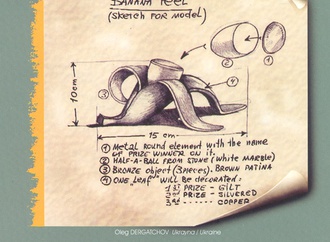 BANANA PEEL
(SKETCH FOR MODEL)
10cm
15 cm
① METAL ROUND ELEMENT WITH THE NAME
OF PRIZE WINNER ON IT.
② HALF-A-BALL FROM STONE (WHITE MARBLE)
③ BRONZE OBJECT (3PIECES). BROWN PATINA
④ ONE "LEAF" WILL BE DECORATED:
1st PRIZE - GILT
2nd PRIZE - SILVERED
3rd ..... - COPPER
Oleg DERGATCHOV, Ukrayna / Ukraine